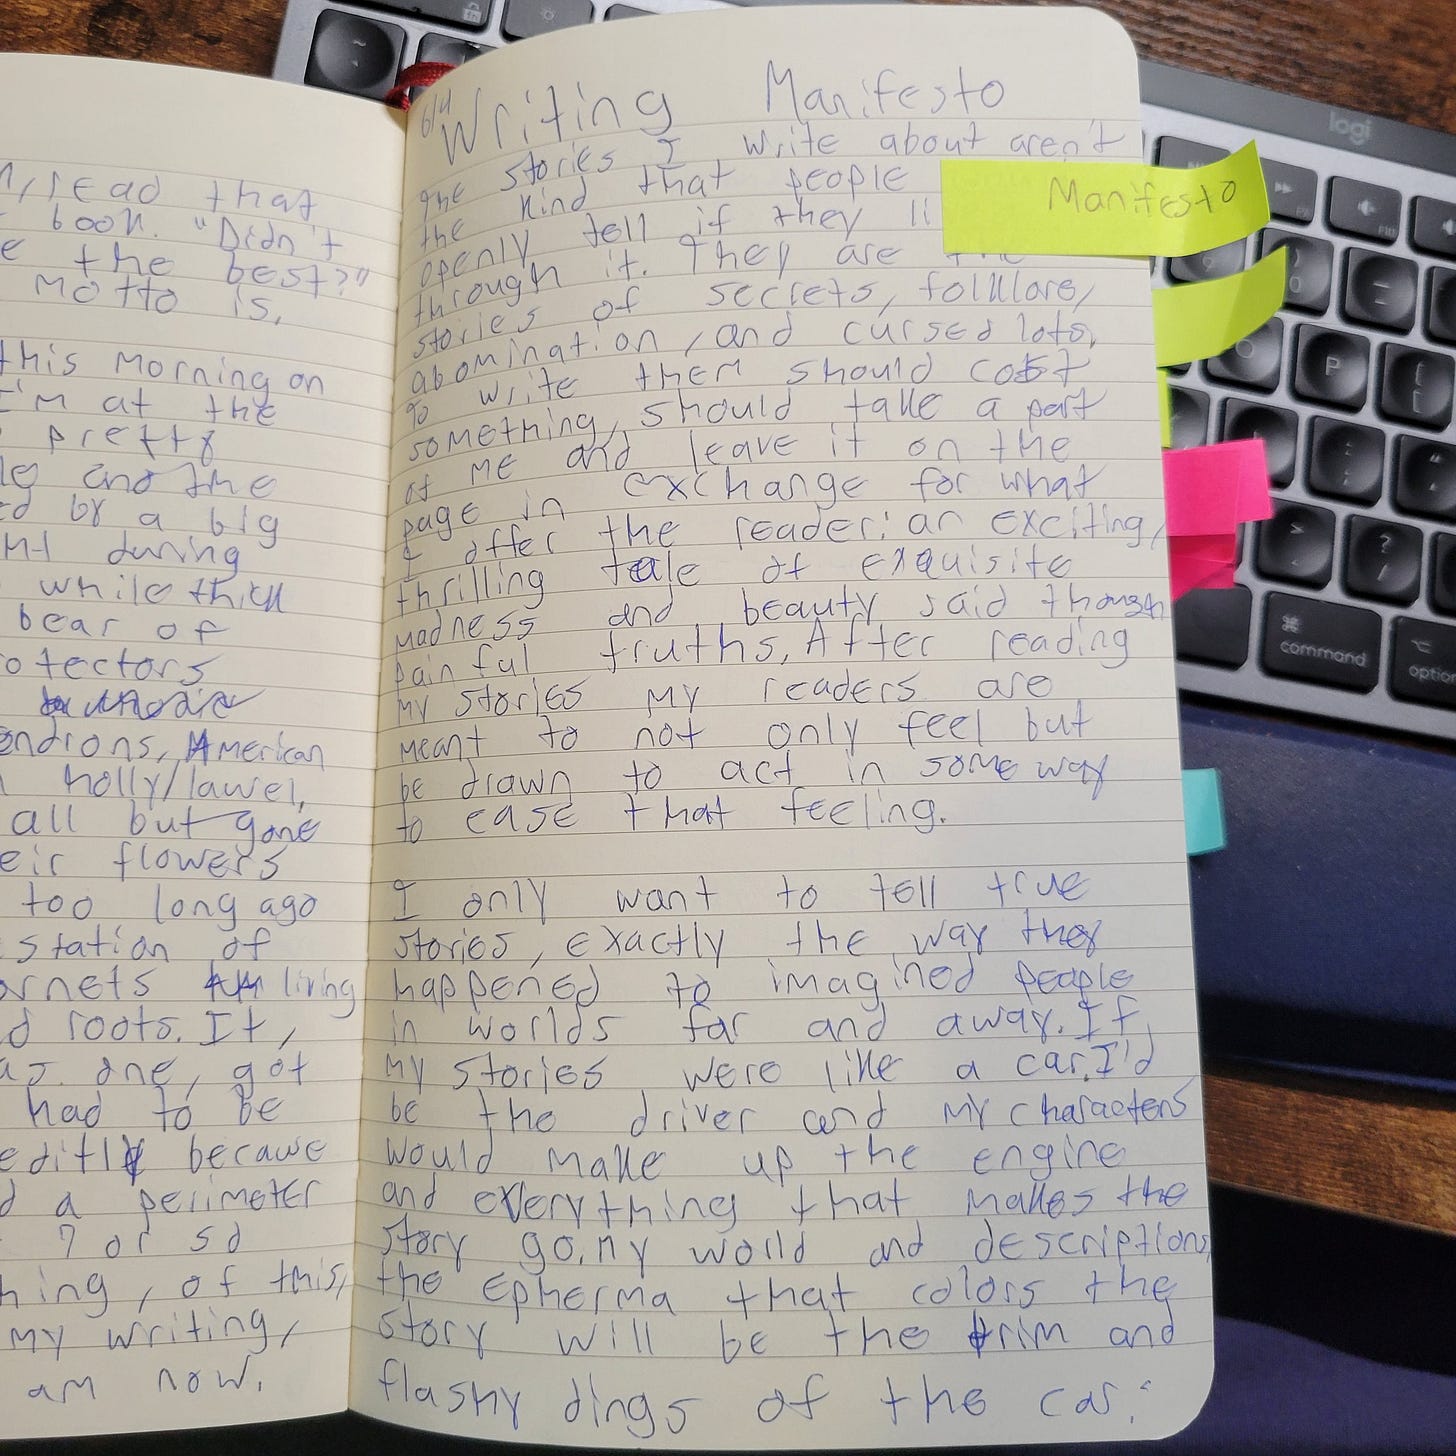 n, read that
t book. "Didn't
e the best?"
motto is,
this morning on
I'm at the
pretty
and the
ed by a big
during
while thick
bear of
otectors
ondrons, American
holly/laurel,
all but gone
eir flowers
too long ago
station of
ornets living
d roots. It,
as one, got
had to be
because
d a perimeter
7 or so
hing, of this,
my writing,
am now.
6/4
Writing Manifesto
The stories I write about aren't
the kind that people
openly tell if they li
through it. They are the
stories of secrets, folklore,
abomination, and cursed lots,
To write them should cost
something, should take a part
of me and leave it on the
page in exchange for what
I offer the reader: an exciting,
thrilling tale of exquisite
madness and beauty said through
painful truths. After reading
my stories my readers are
meant to not only feel but
be drawn to act in some way
to ease that feeling.
I only want to tell true
stories, exactly the way they
happened to imagined people
in worlds far and away. If
my stories were like a car, I'd
be the driver and my characters
would make up the engine
and everything that makes the
story go, my world and descriptions,
the epherma that colors the
story will be the trim and
flashy dings of the car.
Manifesto
logi
F10
P
?
/
⌘
command
⌥
option